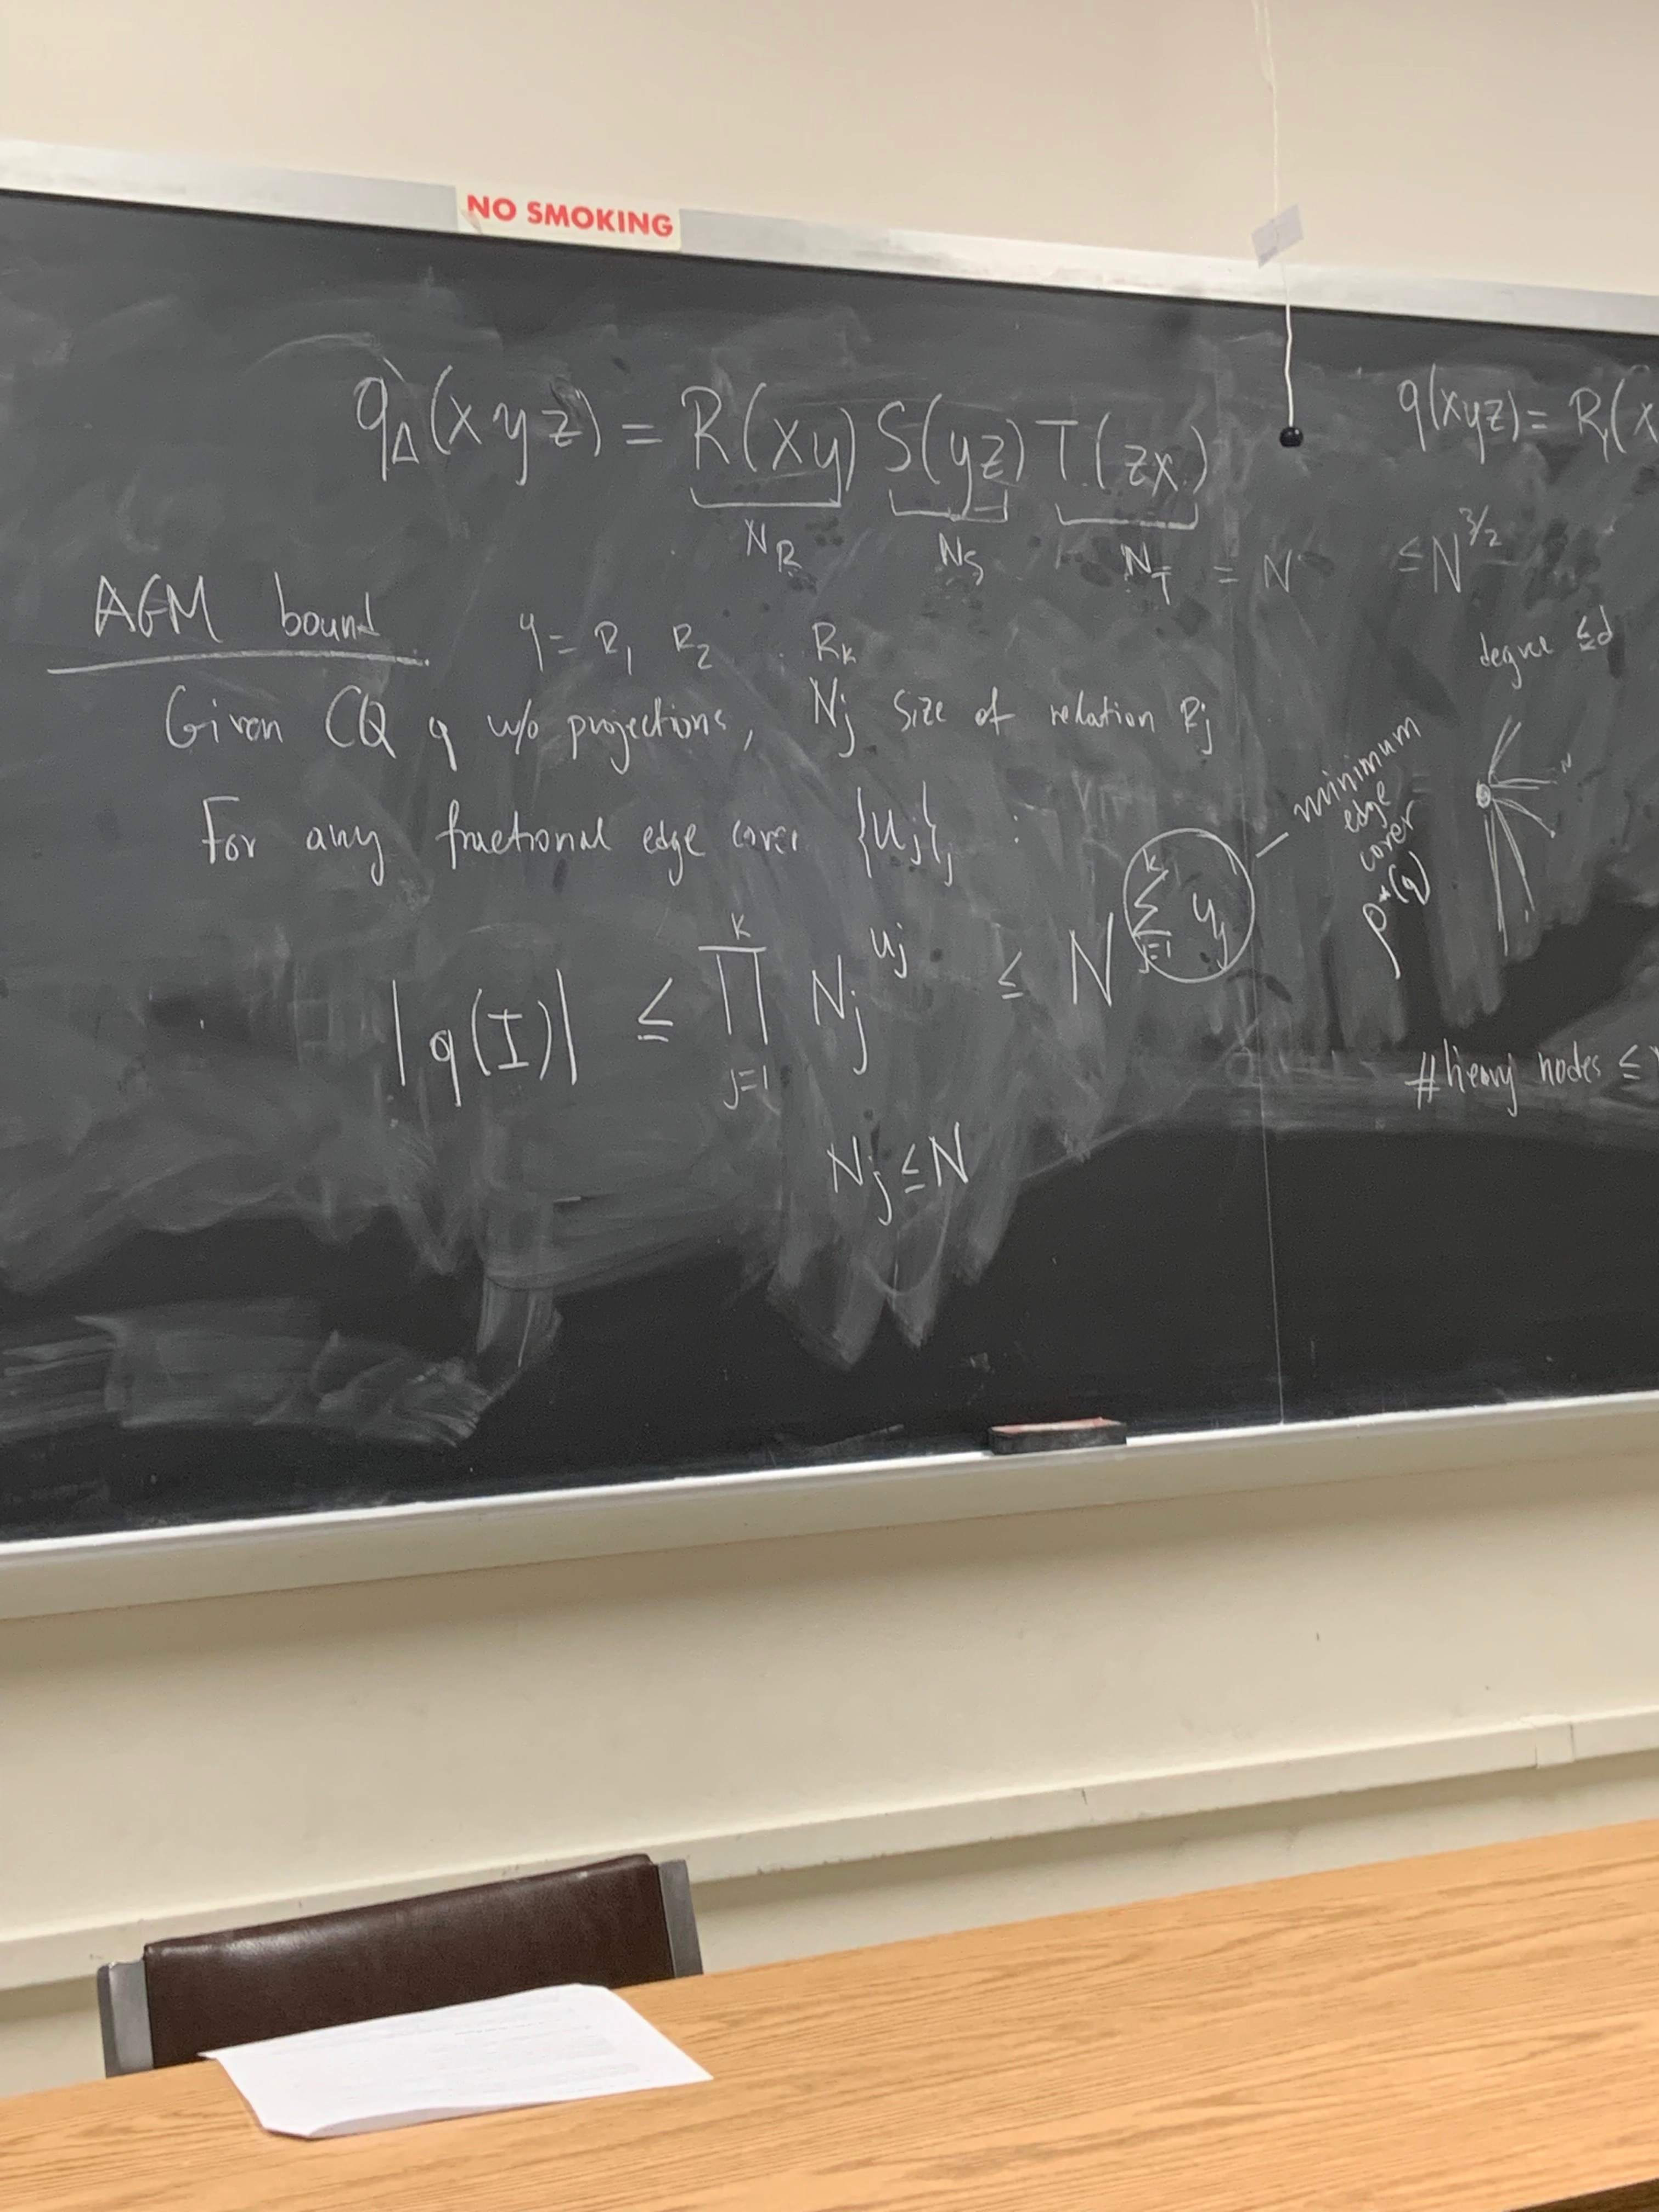 NO SMOKING
q_Δ(x y z) = R(xy) S(yz) T(zx)
N_R N_S N_T = N
AGM bound
q = R_1 R_2 . . R_k
Given CQ q w/o projections, N_j size of relation R_j
For any fractional edge cover {u_j}_j :
|q(I)| ≤ ∏_{j=1}^{k} N_j^{u_j} ≤ N^{∑_{j=1}^{k} u_j}
N_j ≤ N
minimum
edge
cover
ρ*(q)
q(xyz) = R_1(x
≤ N^{3/2}
degree ≤ d
N
#heavy nodes ≤